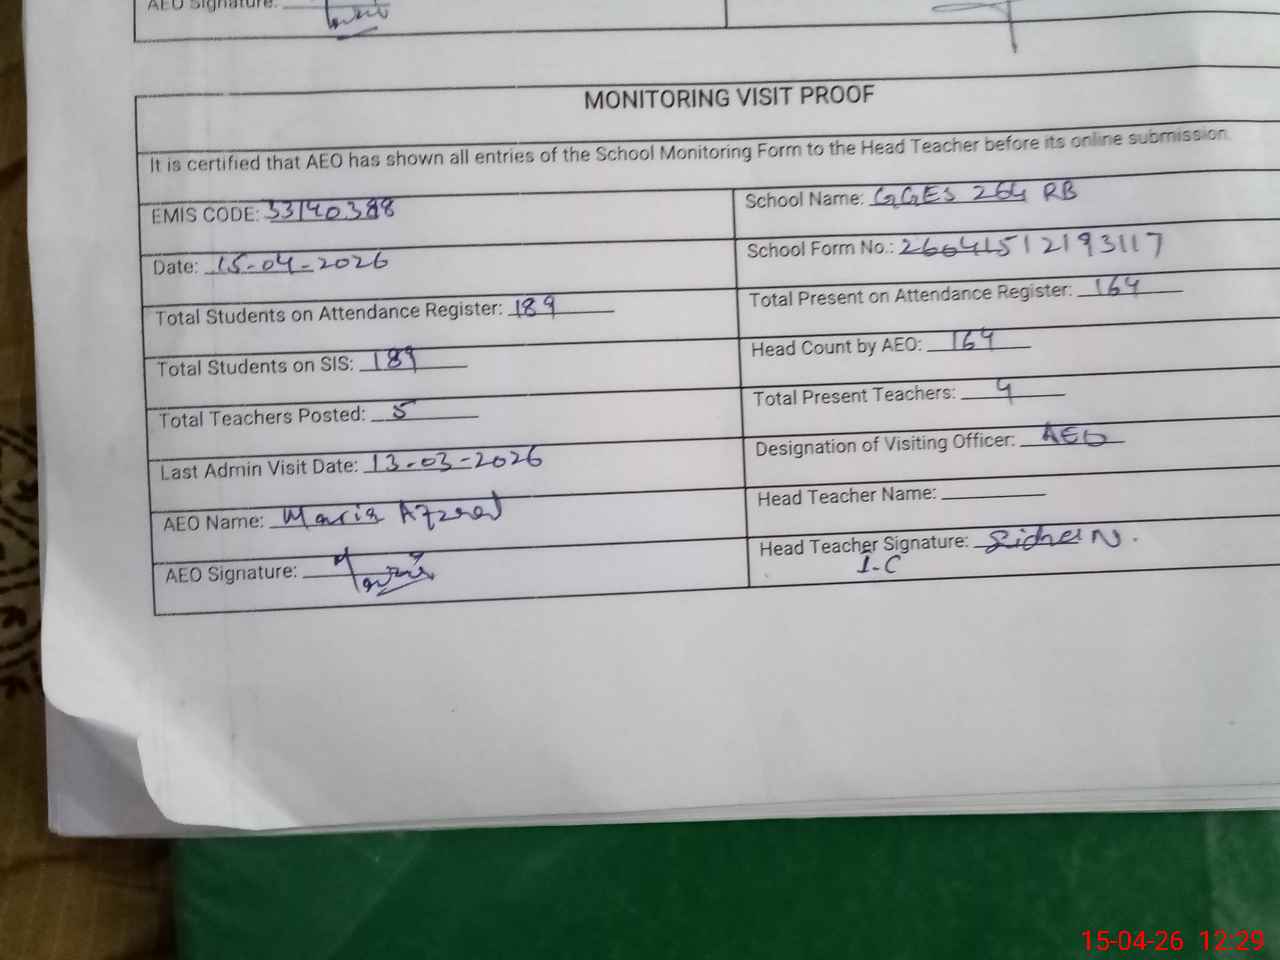 AEO Signature:
MONITORING VISIT PROOF
It is certified that AEO has shown all entries of the School Monitoring Form to the Head Teacher before its online submission.
EMIS CODE: 33140388
School Name: GGES 264 RB
Date: 15-04-2026
School Form No.: 26041512193117
Total Students on Attendance Register: 189
Total Present on Attendance Register: 164
Total Students on SIS: 189
Head Count by AEO: 164
Total Teachers Posted: 5
Total Present Teachers: 4
Last Admin Visit Date: 13-03-2026
Designation of Visiting Officer: AEO
AEO Name: Maria
Head Teacher Name:
AEO Signature:
Head Teacher Signature:
I-C
15-04-26 12:29